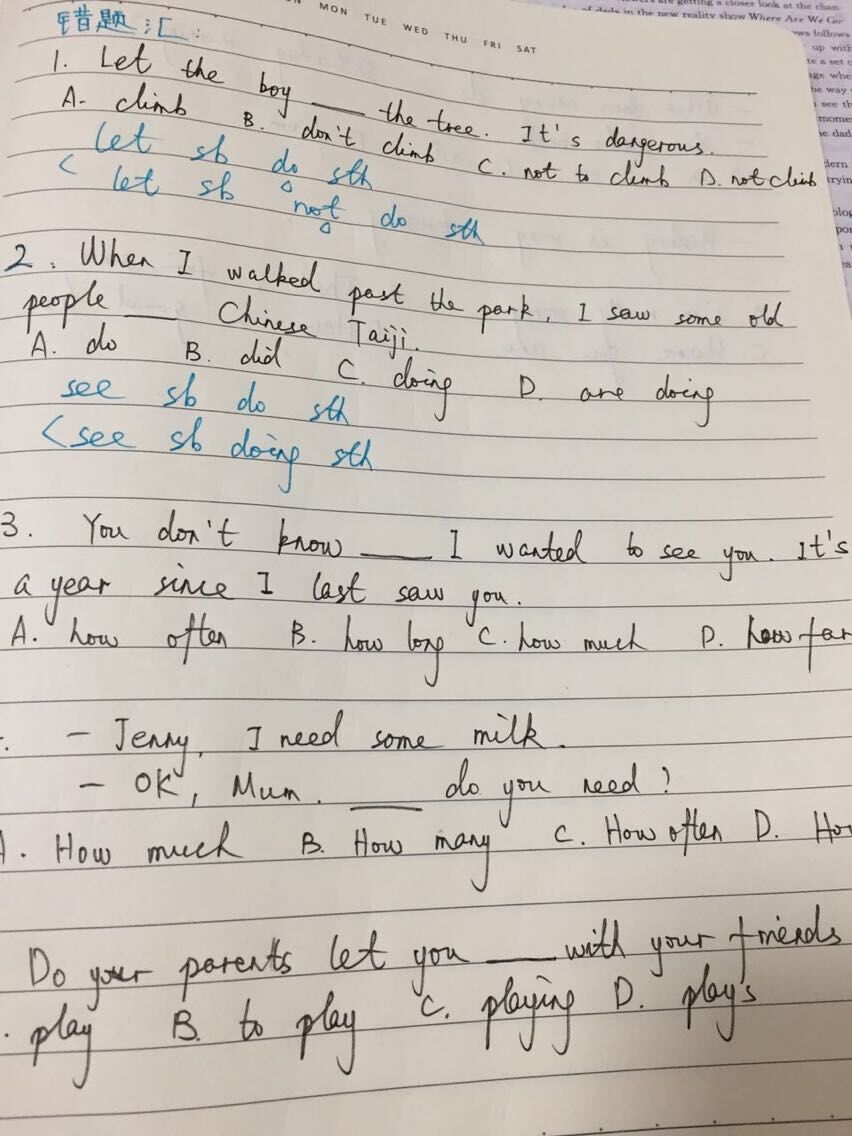 MON TUE WED THU FRI SAT
错题汇:
1. Let the boy ___ the tree. It's dangerous.
A. climb B. don't climb C. not to climb D. not climb
let sb do sth
< let sb not do sth
2. When I walked past the park, I saw some old
people ___ Chinese Taiji.
A. do B. did C. doing D. are doing
see sb do sth
< see sb doing sth
3. You don't know ___ I wanted to see you. It's
a year since I last saw you.
A. how often B. how long C. how much D. how far
- Jenny, I need some milk.
- OK, Mum. ___ do you need?
. How much B. How many C. How often D. Ho
Do your parents let you ___ with your friends
. play B. to play C. playing D. play's
are getting a closer look at the chan
of dads in the new reality show Where Are We Go
ws follows
up with
te a set o
age whe
he way
see th
mome
e dad
dern
ryin